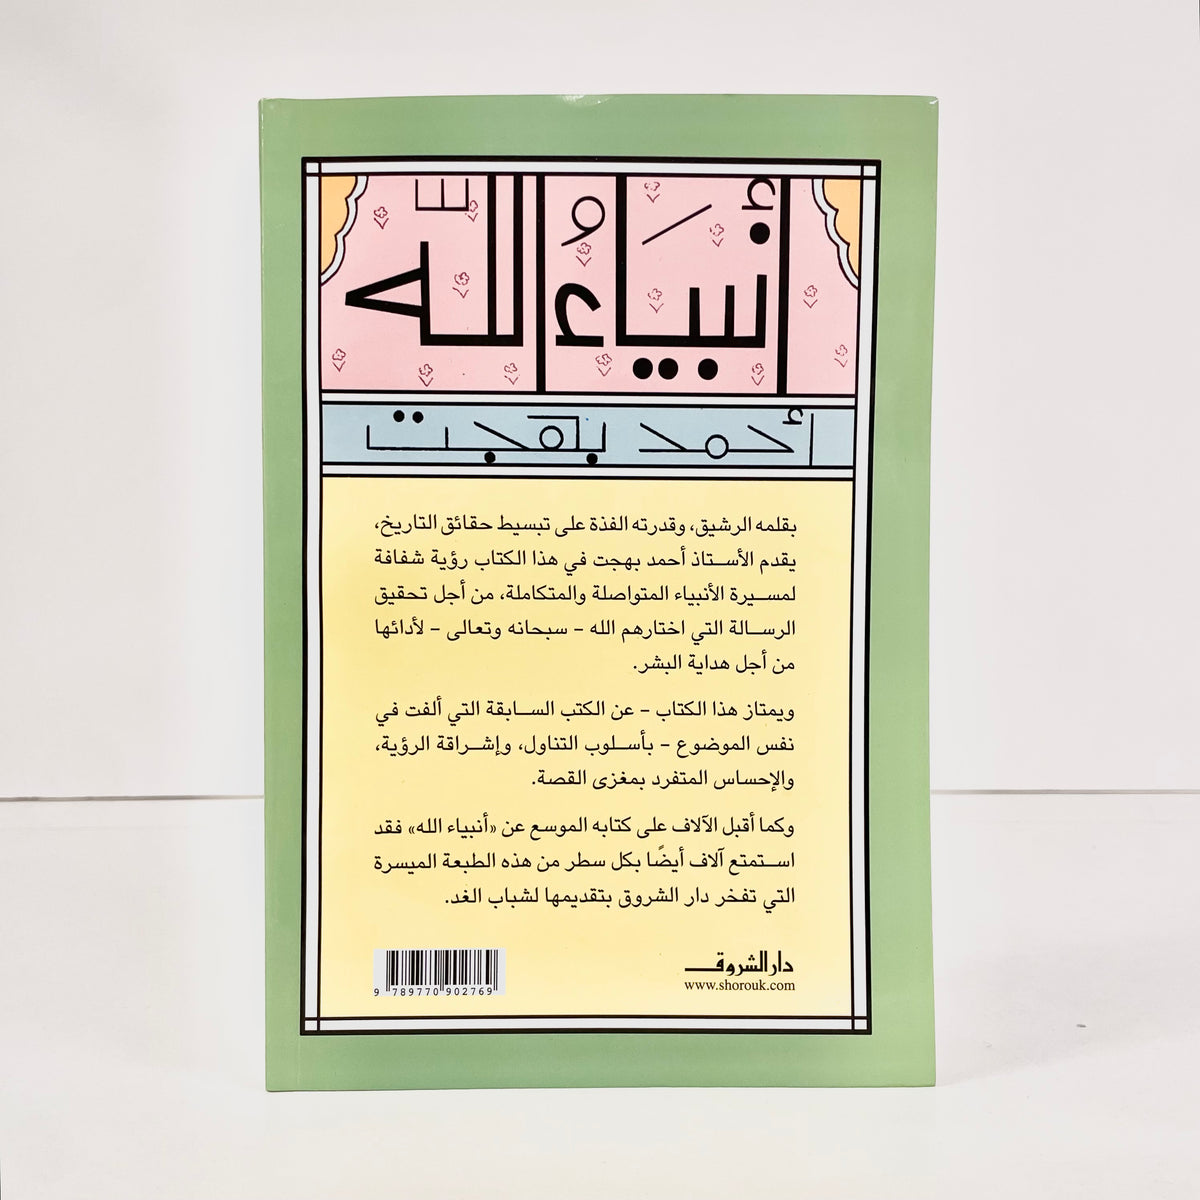 أنبياءُ اللَّه
أحمد بهجت
بقلمه الرشيق، وقدرته الفذة على تبسيط حقائق التاريخ،
يقدم الأستاذ أحمد بهجت في هذا الكتاب رؤية شفافة
لمسيرة الأنبياء المتواصلة والمتكاملة، من أجل تحقيق
الرسالة التي اختارهم الله – سبحانه وتعالى – لأدائها
من أجل هداية البشر.
ويمتاز هذا الكتاب – عن الكتب السابقة التي ألفت في
نفس الموضوع – بأسلوب التناول، وإشراقة الرؤية،
والإحساس المتفرد بمغزى القصة.
وكما أقبل الآلاف على كتابه الموسع عن «أنبياء الله» فقد
استمتع آلاف أيضًا بكل سطر من هذه الطبعة الميسرة
التي تفخر دار الشروق بتقديمها لشباب الغد.
دار الشروق
www.shorouk.com
9 789770 902769